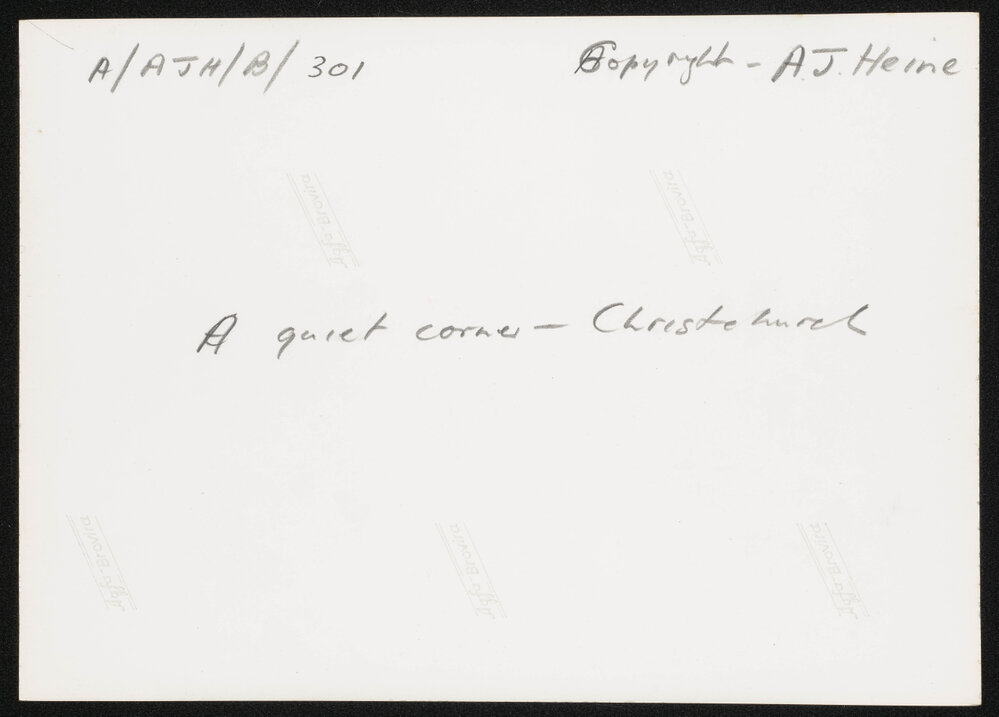 A/AJH/B/301
Copyright - A.J. Heine
Agfa-Brovira
Agfa-Brovira
A quiet corner - Christchurch
Agfa-Brovira
Agfa-Brovira
Agfa-Brovira